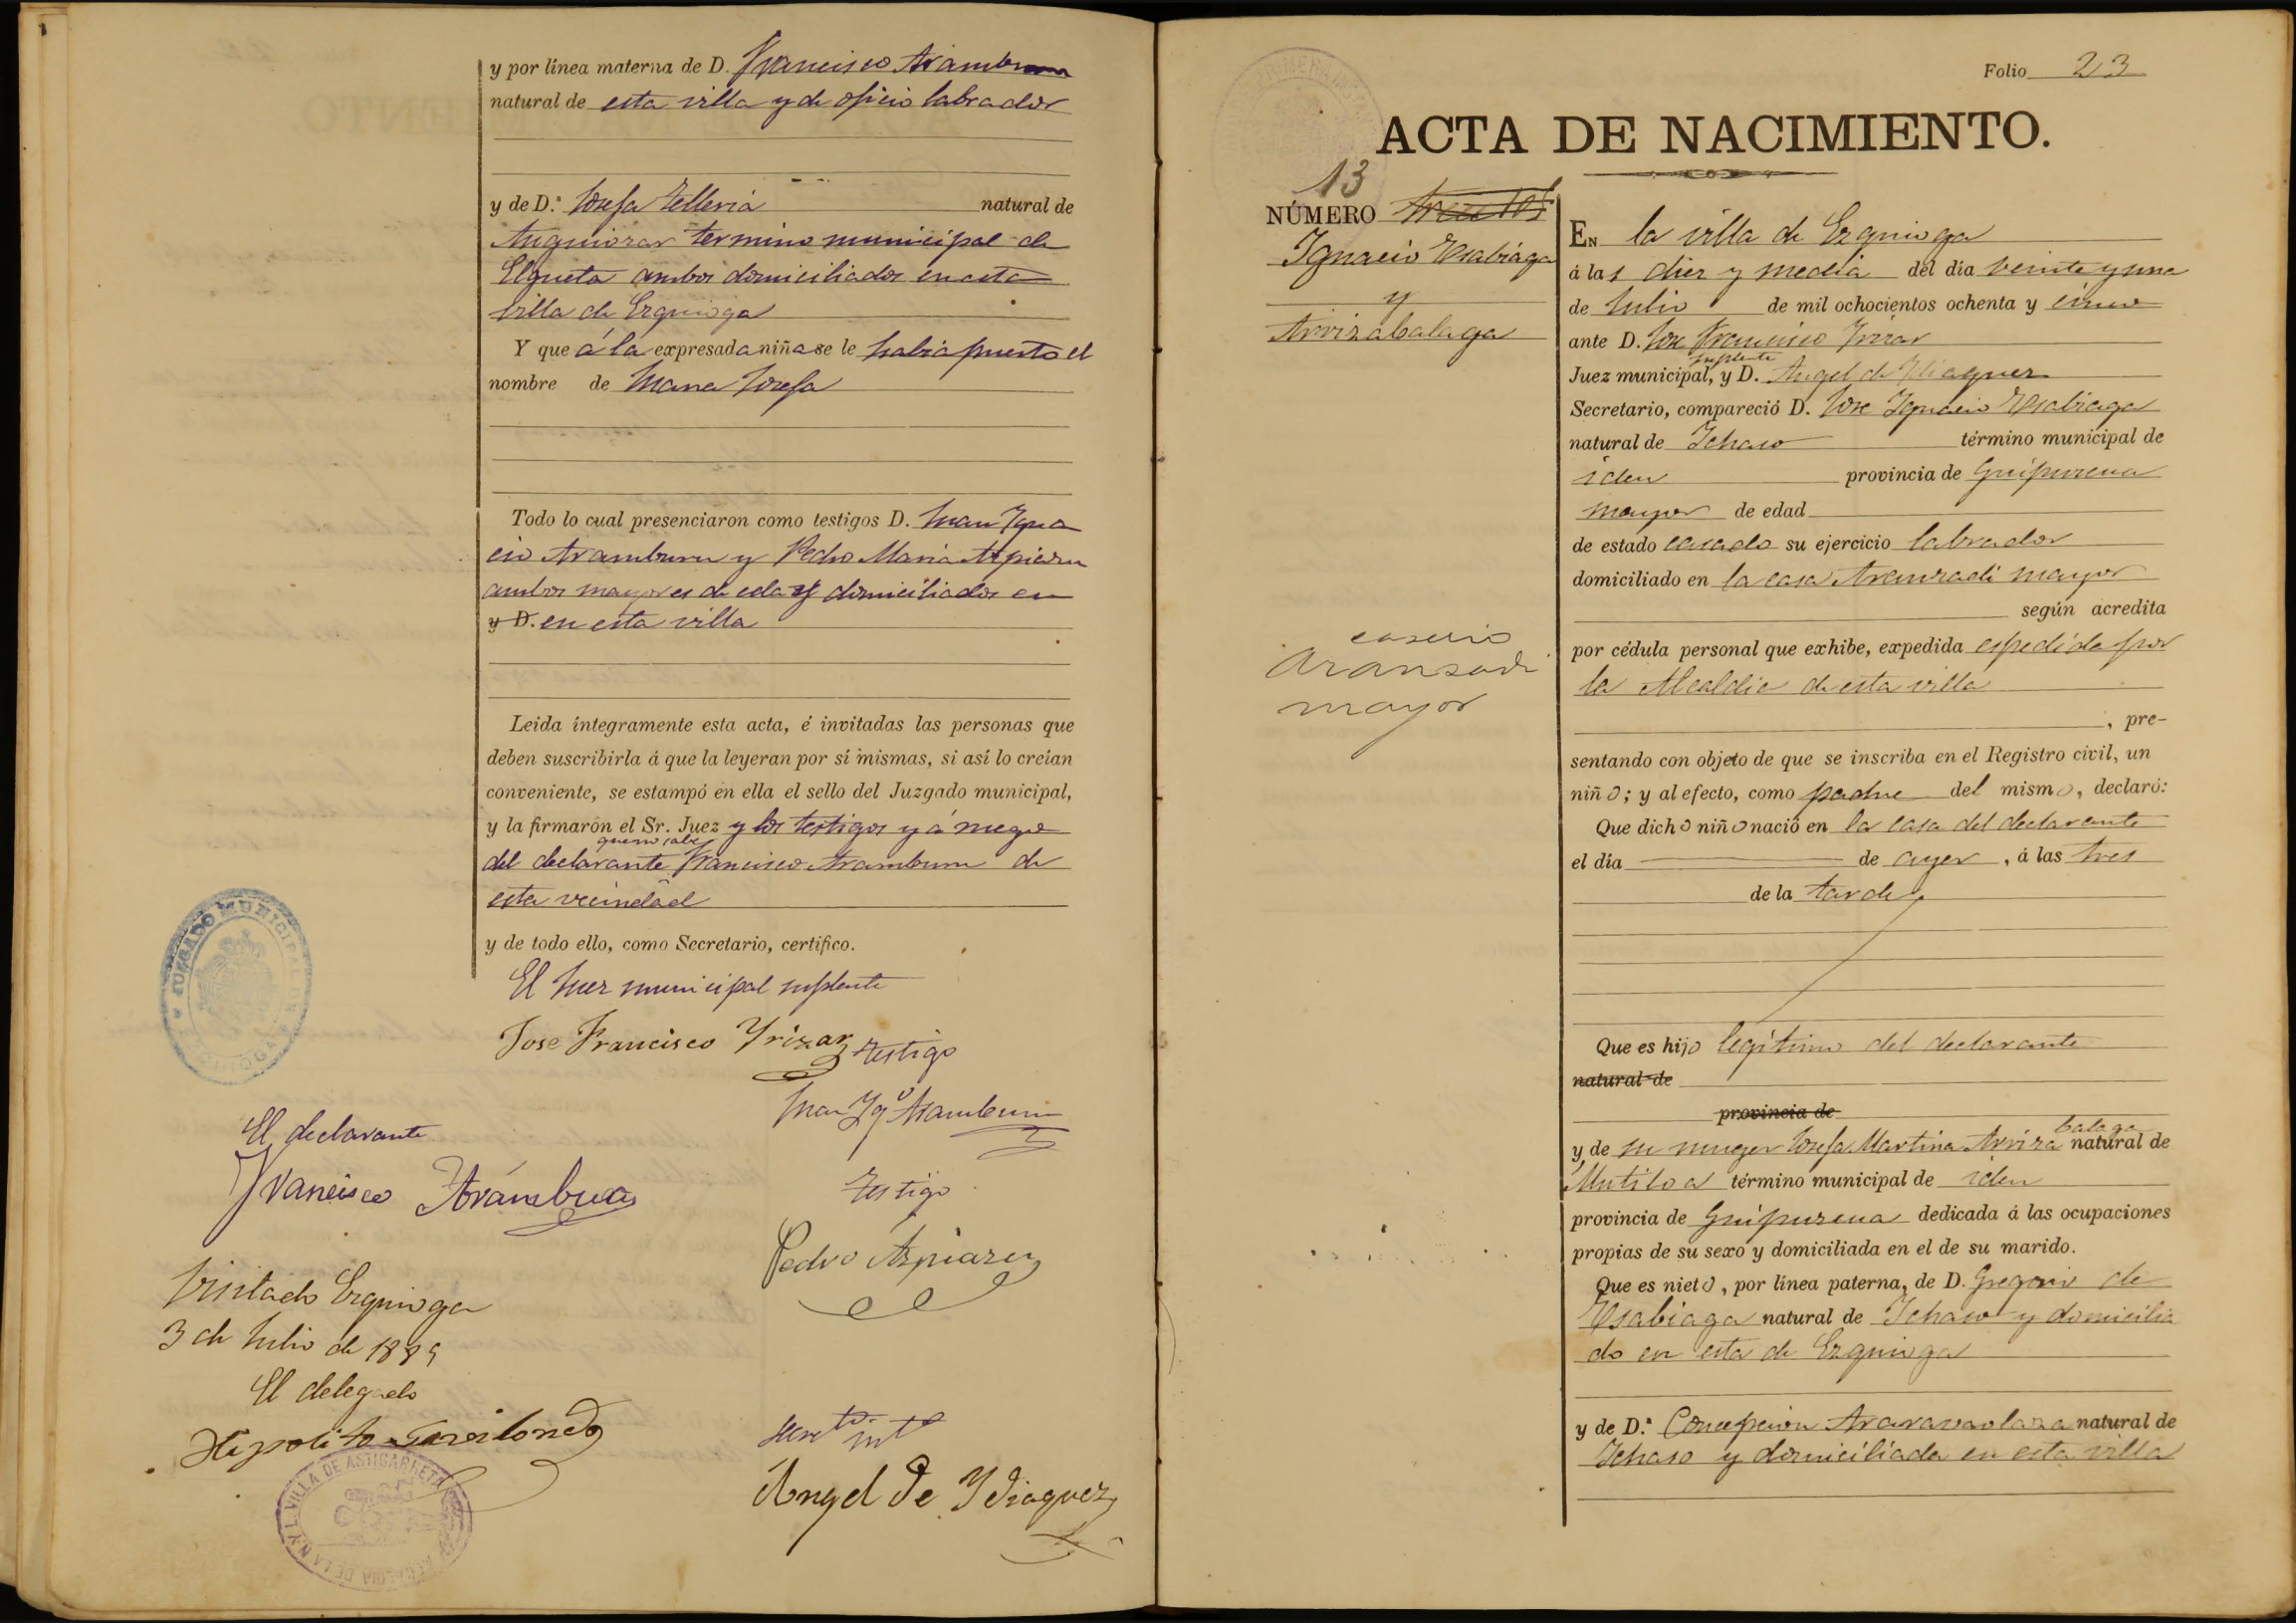 y por línea materna de D. Francisco Aramburu
natural de esta villa y de oficio labrador
y de D.ª Josefa Telleria natural de
Anguiozar término municipal de
Elgueta ambos domiciliados en esta
villa de Ezquioga
Y que á la expresada niña se le habia puesto el
nombre de Maria Josefa
Todo lo cual presenciaron como testigos D. Juan Igna
cio Aramburu y Pedro Maria Azpiazu
ambos mayores de edad y domiciliados en
y D. en esta villa
Leida íntegramente esta acta, é invitadas las personas que
deben suscribirla á que la leyeran por sí mismas, si así lo creían
conveniente, se estampó en ella el sello del Juzgado municipal,
y la firmaron el Sr. Juez y los testigos y á ruego
del declarante Francisco Aramburu de
esta vecindad
y de todo ello, como Secretario, certifico.
El Juez municipal suplente
Jose Francisco Yrizar
testigo
Juan Ygº Aramburu
El declarante
Francisco Arámburu
testigo
Pedro Azpiazu
Visitado Ezquioga
3 de Julio de 1885
El delegado
Hipolito
Angel De Ydiaquez
JUZGADO MUNICIPAL
VILLA DE ASTIGARRETA
Folio 23
ACTA DE NACIMIENTO.
13
NÚMERO
Ignacio Ysabiaga
y
Arrizabalaga
caserio
Aranzadi
mayor
EN la villa de Ezquioga
á las diez y media del día veinte y uno
de Julio de mil ochocientos ochenta y cinco
ante D. Jose Francisco Yrizar
suplente
Juez municipal, y D. Angel de Ydiaquez
Secretario, compareció D. Jose Ignacio Ysabiaga
natural de Ichaso término municipal de
iden provincia de Guipuzcua
mayor de edad
de estado casado su ejercicio labrador
domiciliado en la casa Aranzadi mayor
según acredita
por cédula personal que exhibe, expedida espedida por
la Alcaldia de esta villa
, pre-
sentando con objeto de que se inscriba en el Registro civil, un
niño; y al efecto, como padre del mismo, declaró:
Que dicho niño nació en la casa del declarante
el día de ayer, á las tres
de la tarde
Que es hijo legítimo del declarante
natural de
provincia de
y de su muger Josefa Martina Arriza balaga natural de
Mutiloa término municipal de iden
provincia de Guipuzcua dedicada á las ocupaciones
propias de su sexo y domiciliada en el de su marido.
Que es nieto, por línea paterna, de D. Gregorio de
Ysabiaga natural de Ichaso y domicilia
do en esta de Ezquioga
y de D.ª Concepcion natural de
Ichaso y domiciliada en esta villa